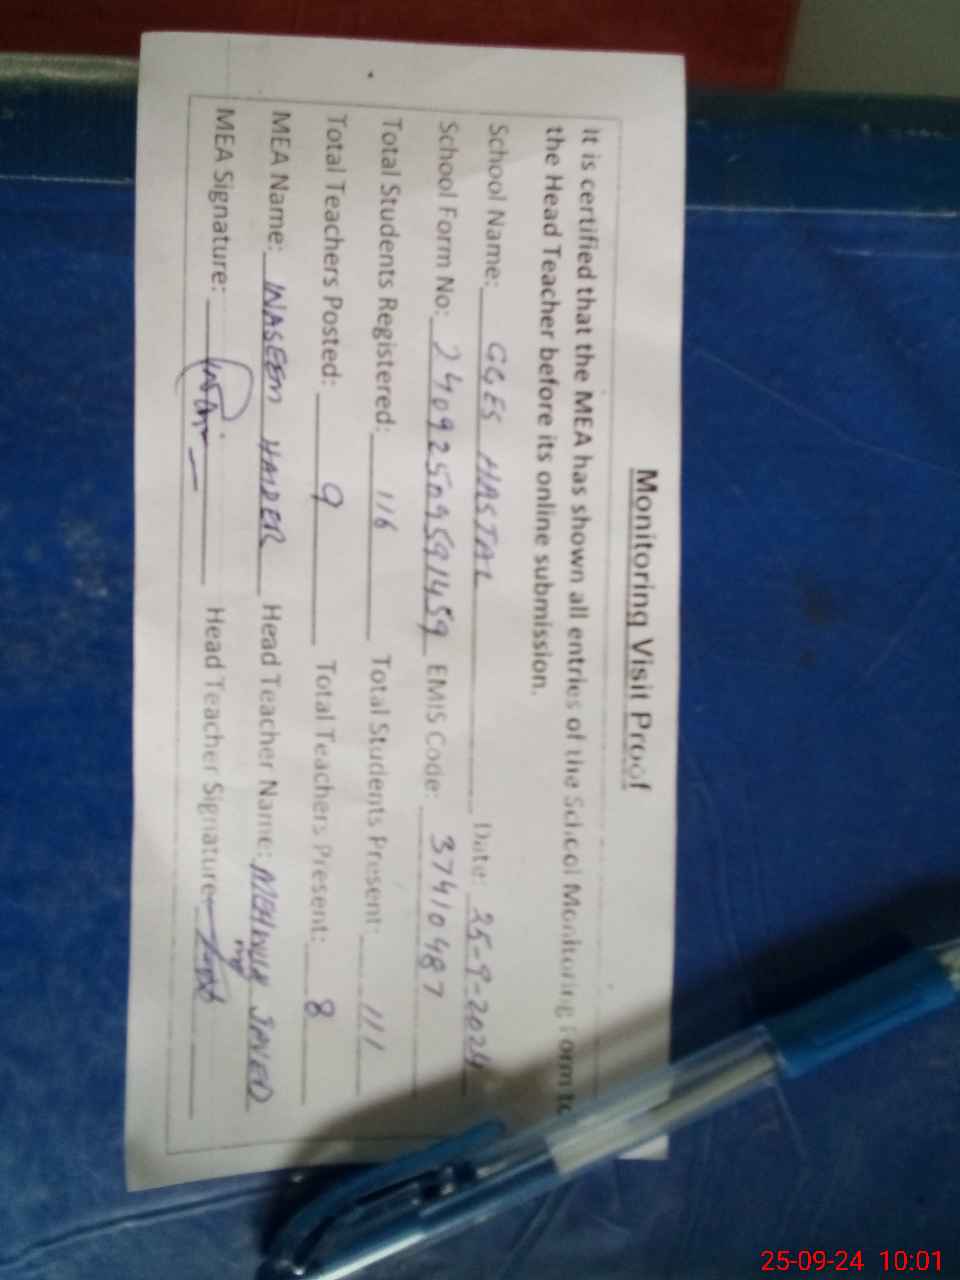 Monitoring Visit Proof
It is certified that the MEA has shown all entries of the School Monitoring Form to
the Head Teacher before its online submission.
School Name: GGES HASTAL Date: 25-9-2024
School Form No: 24092509591459 EMIS Code: 37410487
Total Students Registered: 116 Total Students Present: 111
Total Teachers Posted: 9 Total Teachers Present: 8
MEA Name: WASEEM HAIDER Head Teacher Name: JAVED
MEA Signature: Head Teacher Signature
25-09-24 10:01